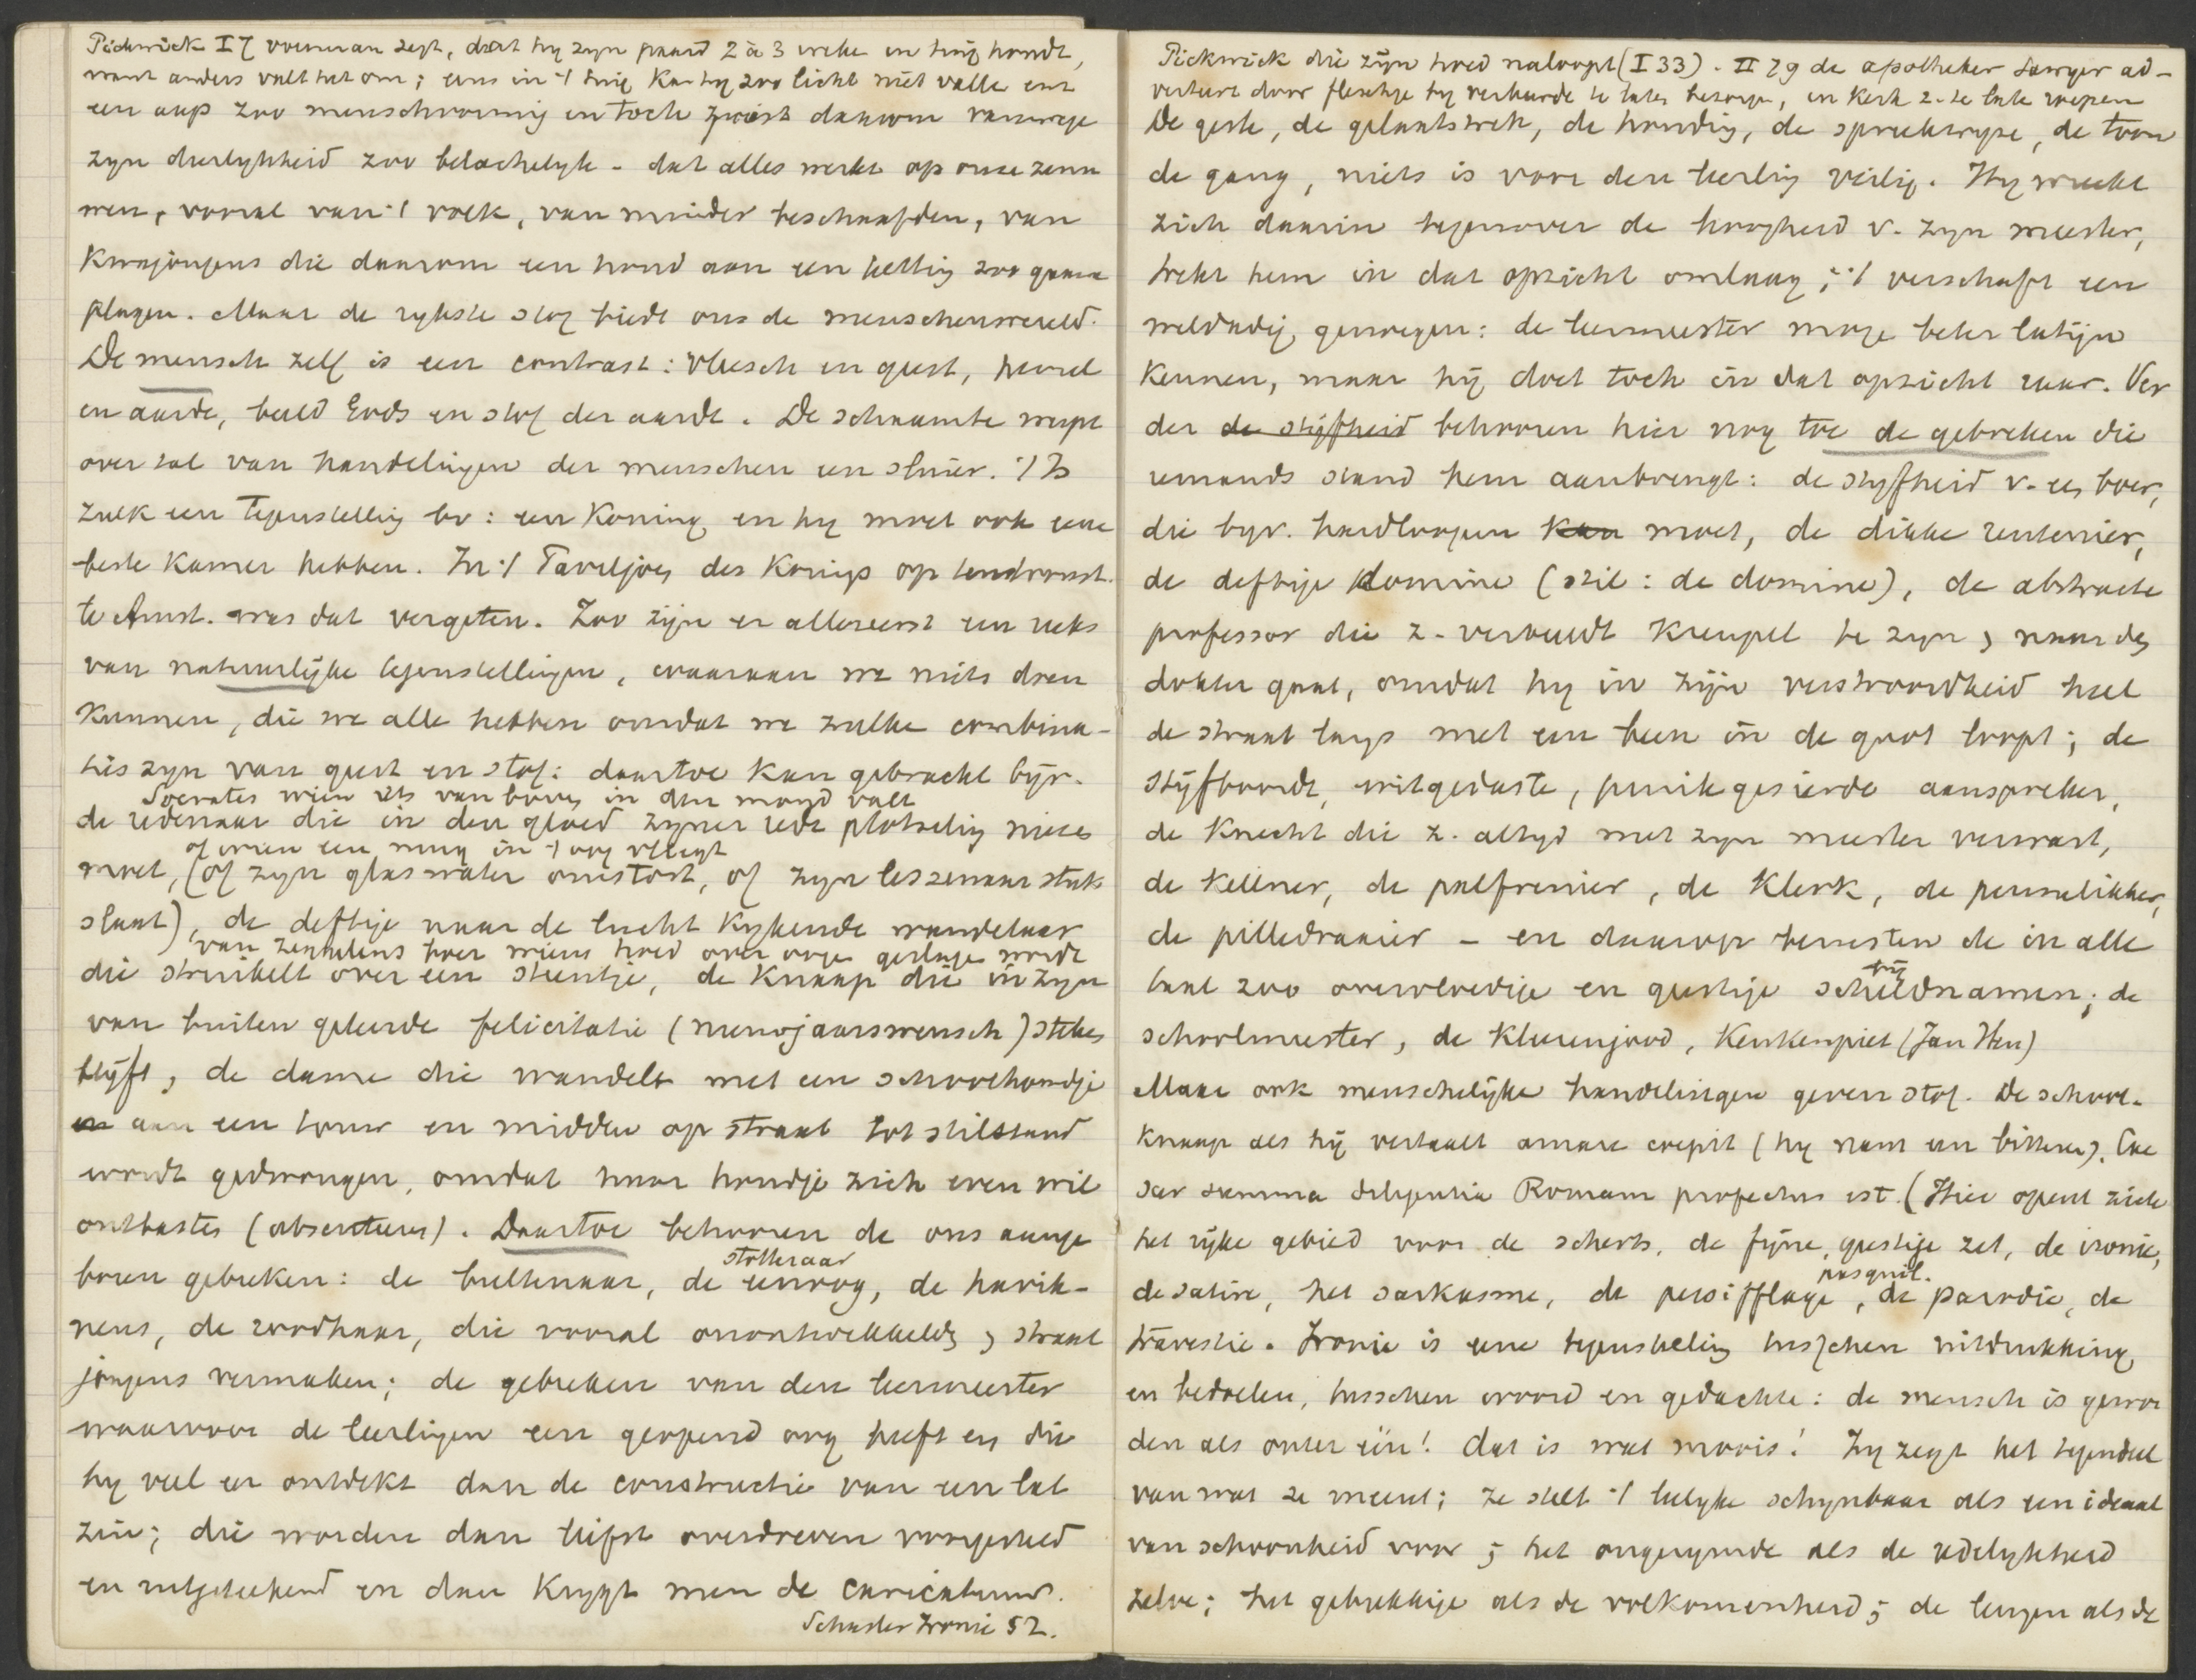 Pickwick I 7 voerman zegt, dat hy zyn paard 2 à 3 weke in tuig houdt,
want anders valt het om; eens in 't tuig kan hy zoo licht niet valle
een aap zoo menschvormig en toch juist daarom vanwege
zyn dierlykheid zoo belachelyk - dat alles werkt op onze zenu
wen, vooral van 't volk, van minder beschaafden, van
kwajongens die daarom een hond aan een ketting zoo gaarne
plagen. Maar de rykste stof biedt ons de menschenwereld.
De mensch zelf is een contrast: vleesch en geest, hemel
en aarde, beeld Gods en stof der aarde. De schaamte werpt
over tal van handelingen der menschen een sluier. 't Is
zulk een tegenstelling bv: een Koning en hy moet ook eene
beste kamer hebben. In 't Paviljoen des Konings op tentoonst.
te Amst. was dat vergeten. Zoo zijn er allereerst een reeks
van natuurlijke tegenstellingen, waaraan we niets doen
kunnen, die we alle hebben omdat we zulke combina-
ties zyn van geest en stof: daartoe kan gebracht bijv.
Socrates wien iets van boven in den mond valt
de redenaar die in den gloed zyner rede plotseling niezen
of wien een mug in 't oog vliegt
moet, (of zyn glas water omstoot, of zyn lessenaar stuk
slaat), de deftige naar de lucht kykende wandelaar
van zessulens heer wiens hoed over ooge geslage wordt
die struikelt over een steentje, de knaap die in zyn
van buiten geleerde felicitatie (nieuwjaarswensch) steken
blijft, de dame die wandelt met een schoothondje
aan een touw en midden op straat tot stilstand
wordt gedwongen, omdat haar hondje zich even wil
ontlasten (absenteren). Daartoe behooren de ons aange
stotteraar
boren gebreken: de bultenaar, de eenoog, de havik-
neus, de roodhaar, die vooral onontwikkelden, straat
jongens vermaken; de gebreken van den leermeester
waarvoor de leerlingen een geopend oog heeft en die
hy veel eer ontdekt dan de constructie van een lat
zin; die worden dan liefst overdreven voorgesteld
en uitgeteekend en dan krygt men de caricatuur.
Schasler Ironie 52.
Pickwick die zijn hoed naloopt (I 33). II 79 de apotheker Sawyer ad-
verteert door fleschje by verkeerde te laten bezorge, in kerk z. te late roepen
De geste, de gelaatstrek, de houding, de spreekwyze, de toon
de gang, niets is voor den leerling veilig. Hy wreekt
zich daarin tegenover de hoogheid v. zyn meester,
trekt hem in dat opzicht omlaag; 't verschaft een
weldadig genoegen: de leermeester moge beter latijn
kennen, maar hij doet toch in dat opzicht raar. Ver
der de stijfheid behooren hier nog toe de gebreken die
iemands stand hem aanbrengt: de styfheid v. een boer,
die byv. hardloopen kan moet, de dikke rentenier,
de deftige domine (stil: de domine), de abstracte
professor die z. verbeeldt kreupel te zyn, naar den
dokter gaat, omdat hy in zijn verstrooidheid heel
de straat langs met een been in de goot loopt; de
stijfboordt, witgedaste, puntkgesierde aanspreker,
de knecht die z. altyd met zyn meester verwart,
de kellner, de palfrenier, de klerk, de pennelikker,
de pilledraaier - en daarop berusten de in alle
bij
taal zoo overvloedige en geestige scheldnamen; de
schoolmeester, de kleerenjood, Keukenpiet (Jan Hen)
Maar ook menschelijke handelingen geven stof. De school-
knaap als hij vertaalt amare coepit (hy nam een bittere). Cae
sar summa diligentia Romam profectus est. (Hier opent zich
het rijke gebied voor de scherts, de fijne, geestige zet, de ironie,
pasquil.
de satire, het sarkasme, de persifflage, de parodie, de
travestie. Ironie is eene tegenstelling tusschen uitdrukking
en bedoelen, tusschen woord en gedachte: de mensch is gewor
den als onzer één! dat is wat moois! Zy zegt het tegendeel
van wat ze meent; ze stelt 't leelyke schynbaar als een ideaal
van schoonheid voor; het ongerymde als de redelykheid
zelve; het gebrekkige als de volkomenheid; de leugen als de